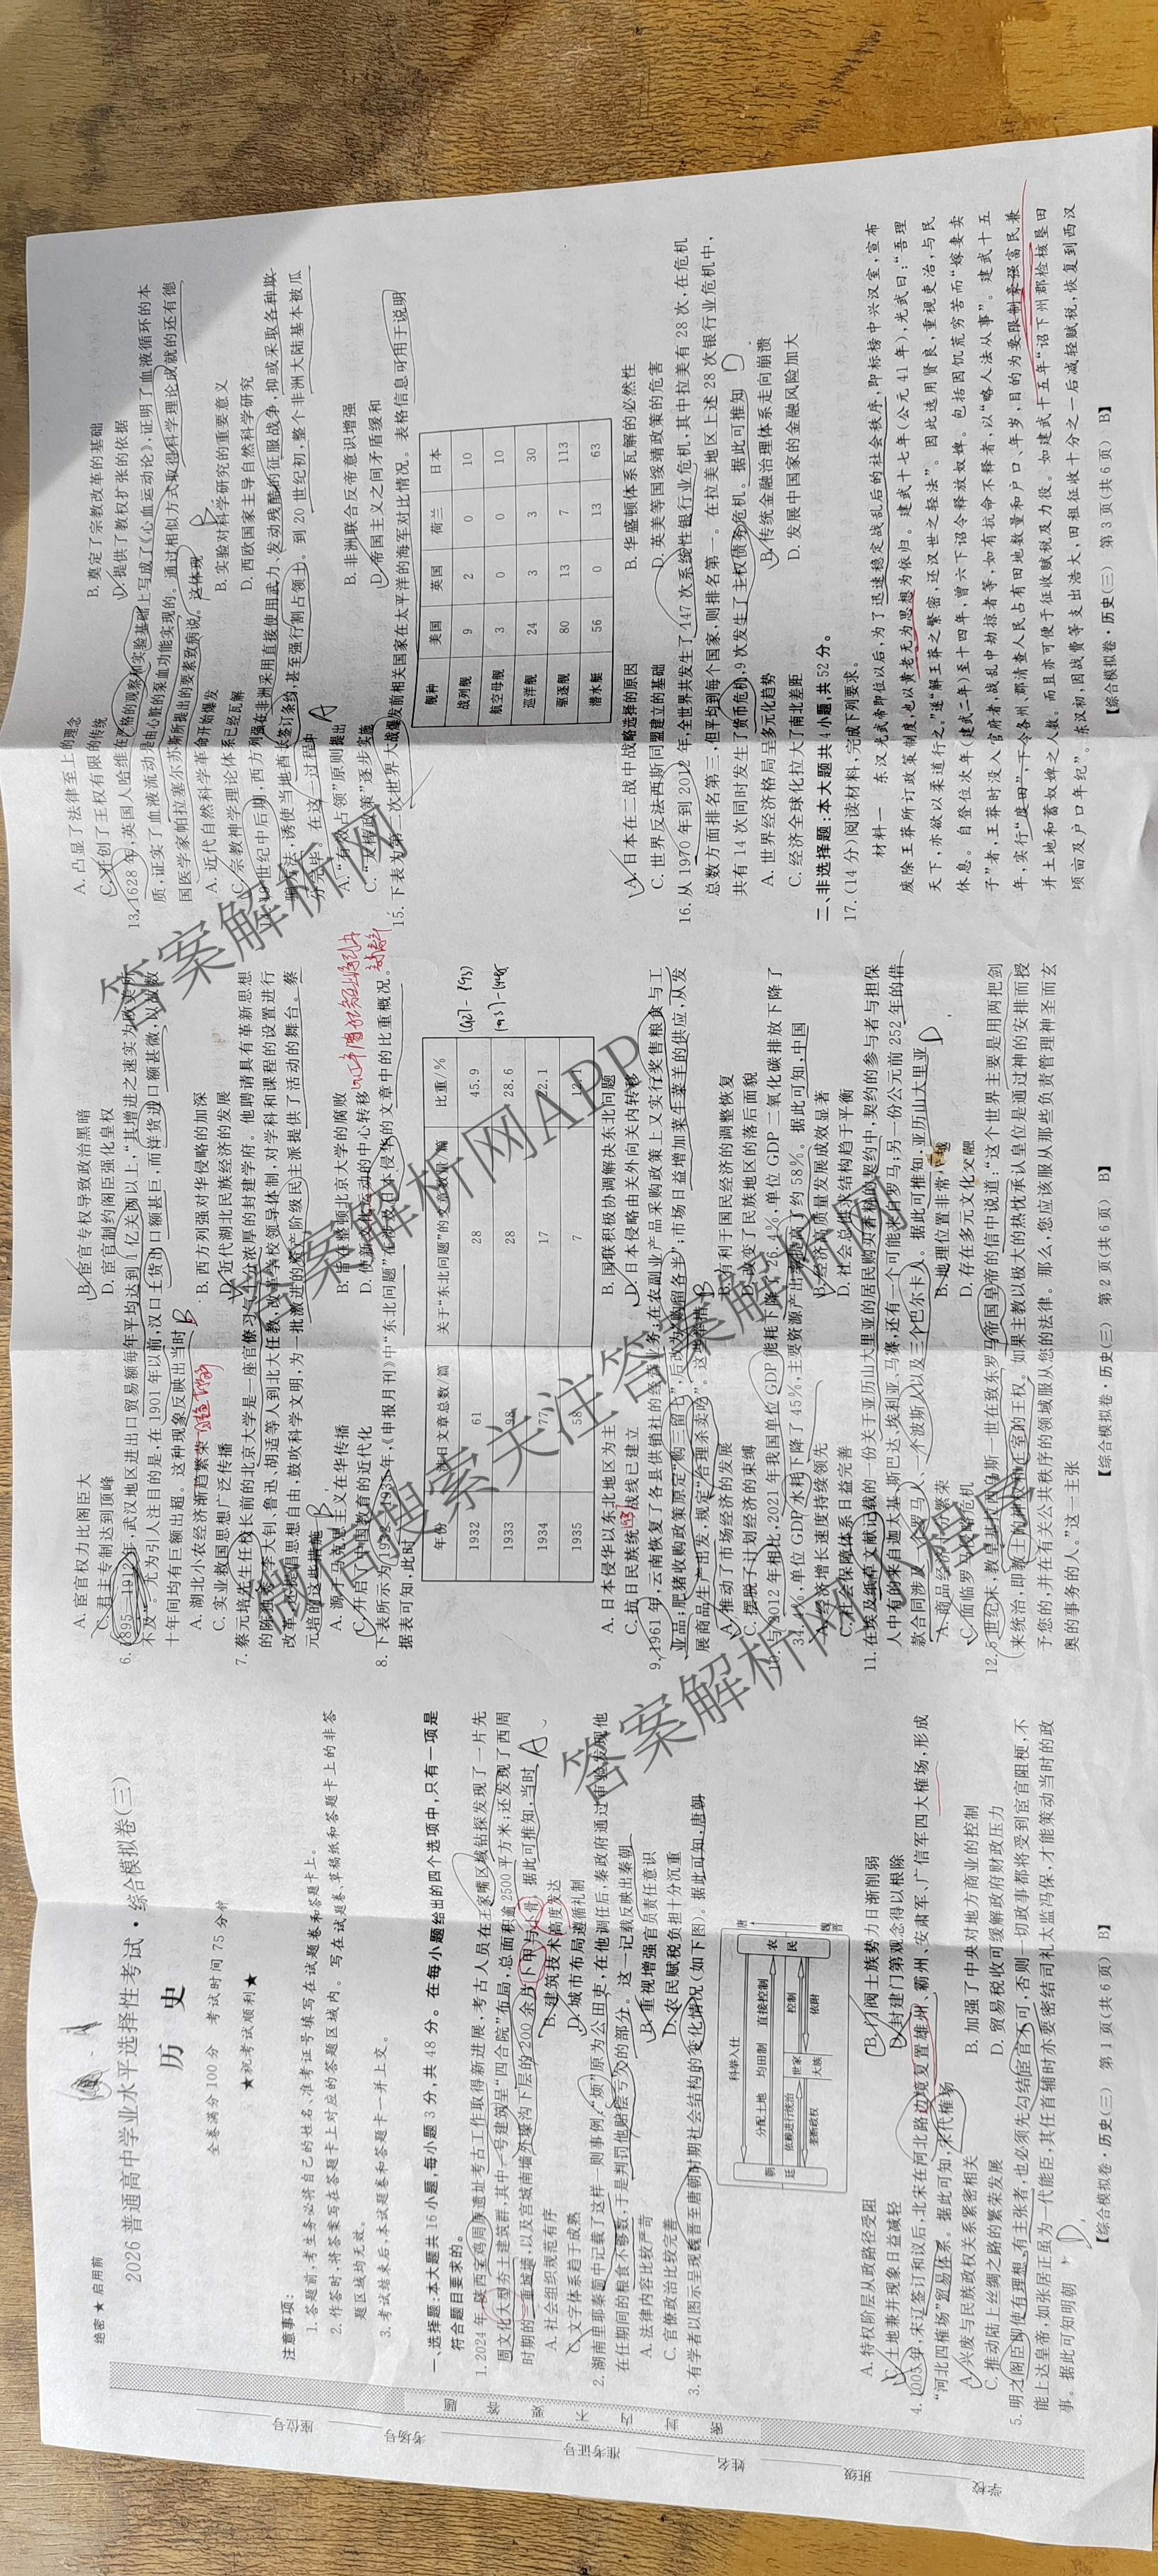 绝密★启用前
2026普通高中学业水平选择性考试·综合模拟卷(三)
历 史
全卷满分100分 考试时间75分钟
★祝考试顺利★
注意事项：
1.答题前,考生务必将自己的姓名、准考证号填写在试题卷和答题卡上。
2.作答时,将答案写在答题卡上对应的答题区域内。写在试题卷、草稿纸和答题卡上的非答
题区域均无效。
3.考试结束后,本试题卷和答题卡一并上交。
一、选择题:本大题共16小题,每小题3分,共48分。在每小题给出的四个选项中,只有一项是
符合题目要求的。
1.2024年,陕西宝鸡周原遗址考古工作取得新进展,考古人员在王家嘴区域钻探发现了一片先
周文化大型夯土建筑群,其中一号建筑呈“四合院”布局,总面积逾2500平方米;还发现了西周
时期的三重城墙,以及宫城南墙外壕沟下层的200余片卜甲与卜骨。据此可推知,当时
A.社会组织规范有序
B.建筑技术高度发达
C.文字体系趋于成熟
D.城市布局遵循礼制
2.湖南里耶秦简中记载了这样一则事例,“烦”原为公田吏,在他调任后,秦政府通过审验发现他
在任期间的粮食不够数,于是判罚他赔偿亏欠的部分。这一记载反映出秦朝
A.法律内容比较严苛
B.重视增强官员责任意识
C.官僚政治比较完善
D.农民赋税负担十分沉重
3.有学者以图示呈现魏晋至唐朝时期社会结构的变化情况(如下图)。据此可知,唐朝
科举入仕
分配土地 均田制 直接控制
依赖进行统治
垄断政权
世家
大族
控制
依附
朝
廷
农
民
唐
魏晋
A.特权阶层从政路径受阻
B.门阀士族势力日渐削弱
C.土地兼并现象日益减轻
D.封建门第观念得以根除
4.1005年,宋辽签订和议后,北宋在河北路边境复置雄州、霸州、安肃军、广信军四大榷场,形成
“河北四榷场”贸易体系。据此可知,宋代榷场
A.兴废与民族政权关系紧密相关
B.加强了中央对地方商业的控制
C.推动陆上丝绸之路的繁荣发展
D.贸易税收可缓解政府财政压力
5.明之阁臣即使有理想、有主张者,也必须先勾结宦官不可,否则一切政事都将受到宦官阻梗,不
能上达皇帝,如张居正虽为一代能臣,其任首辅时亦要密结司礼太监冯保,才能策动当时的政
事。据此可知明朝
【综合模拟卷·历史(三) 第1页(共6页) B】
A.宦官权力比阁臣大
B.宦官专权导致政治黑暗
C.君主专制达到顶峰
D.宦官制约阁臣强化皇权
6.1895—1912年,武汉地区进出口贸易额每年平均达到1亿关两以上,“其增进之速实为
不及”。尤为引人注目的是,在1901年以前,汉口土货出口额甚巨,而洋货进口额甚微,以致数
十年间均有巨额出超。这种现象反映出当时
A.湖北小农经济渐趋繁荣
B.西方列强对华侵略的加深
C.实业救国思想广泛传播
D.近代湖北民族经济的发展
7.蔡元培先生任校长前的北京大学是一座官僚习气十分浓厚的封建学府。他聘请具有革新思想
的陈独秀、李大钊、鲁迅、胡适等人到北大任教,改革学校领导体制,对学科和课程的设置进行
改革,还提倡思想自由,鼓吹科学文明,为一批激进的资产阶级民主派提供了活动的舞台。蔡
元培的这些措施
A.源于马克思主义在华传播
B.旨在整顿北京大学的腐败
C.开启了中国教育的近代化
D.使新文化运动的中心转移
8.下表所示为1932—1935年,《申报月刊》中“东北问题”在涉及日本侵华的文章中的比重概况。
据表可知,此时
年份 涉日文章总数/篇 关于“东北问题”的文章数量/篇 比重/%
1932 61 28 45.9
1933 98 28 28.6
1934 77 17 22.1
1935 58 7
A.日本侵华以东北地区为主
B.国联积极协调解决东北问题
C.抗日民族统一战线已建立
D.日本侵略由关外向关内转移
9.1961年,云南恢复了各县供销社的经济业务;在农副业产品采购政策上又实行奖售粮食与工
业品;肥猪收购政策原定“购三留七”,后改为“购留各半”;市场日益增加菜羊的供应,从发
展商品生产出发,规定“合理杀卖吃”。这些举措
A.推动了市场经济的发展
B.有利于国民经济的调整恢复
C.摆脱了计划经济的束缚
D.改变了民族地区的落后面貌
10.与2012年相比,2021年我国单位GDP能耗下降了26.4%,单位GDP二氧化碳排放下降了
34.4%,单位GDP水耗下降了45%,主要资源产出率提高了约58%。据此可知,中国
A.经济增长速度持续领先
B.经济高质量发展成效显著
C.社会保障体系日益完善
D.社会总供求结构趋于平衡
11.在埃及纸草文献记载的一份关于亚历山大里亚的居民购买香料的契约中,契约的参与者与担保
人中有的来自迦太基、斯巴达、埃利亚、马赛,还有一个可能来自罗马;另一份公元前252年的借
款合同涉及一个罗马人、一个波斯人以及三个巴尔卡人。据此可推知,亚历山大里亚
A.商品经济十分繁荣
B.地理位置非常优越
C.面临罗马统治危机
D.存在多元文化交融
12.5世纪末,教皇基拉西乌斯一世在致东罗马帝国皇帝的信中说道:“这个世界主要是用两把剑
来统治,即教士的神权和王室的王权。如果主教以极大的热忱承认皇位是通过神的安排而授
予您的,并在有关公共秩序的领域服从您的法律。那么,您应该服从那些负责管理神圣而玄
奥的事务的人。”这一主张
【综合模拟卷·历史(三) 第2页(共6页) B】
A.凸显了法律至上的理念
B.奠定了宗教改革的基础
C.开创了王权有限的传统
D.提供了教权扩张的依据
13.1628年,英国人哈维在严格的观察和实验基础上写成了《心血运动论》,证明了血液循环的本
质,证实了血液流动是由心脏的泵血功能实现的。通过相似方式取得科学理论成就的还有德
国医学家帕拉塞尔苏斯所提出的要素致病说。这体现
A.近代自然科学革命开始爆发
B.实验对科学研究的重要意义
C.宗教神学理论体系已经瓦解
D.西欧国家主导自然科学研究
14.19世纪中后期,西方列强在非洲采用直接使用武力、发动残酷的征服战争,抑或采取各种欺
骗手法,诱使当地酋长签订条约,甚至强行割占领土。到20世纪初,整个非洲大陆基本被瓜
分完毕。在这一过程中
A.“有效占领”原则提出
B.非洲联合反帝意识增强
C.“大棒政策”逐步实施
D.帝国主义之间矛盾缓和
15.下表为第二次世界大战爆发前相关国家在太平洋的海军对比情况。表格信息可用于说明
舰种 美国 英国 荷兰 日本
战列舰 9 2 0 10
航空母舰 3 0 0 10
巡洋舰 24 3 3 30
驱逐舰 80 13 7 113
潜水艇 56 0 13 63
A.日本在二战中战略选择的原因
B.华盛顿体系瓦解的必然性
C.世界反法西斯同盟建立的基础
D.英美等国绥靖政策的危害
16.从1970年到2012年,全世界共发生了147次系统性银行业危机,其中拉美有28次,在危机
总数方面排名第三,但平均到每个国家,则排名第一。在拉美地区上述28次银行业危机中,
共有14次同时发生了货币危机,9次发生了主权债务危机。据此可推知
A.世界经济格局呈多元化趋势
B.传统金融治理体系走向崩溃
C.经济全球化拉大了南北差距
D.发展中国家的金融风险加大
二、非选择题:本大题共4小题,共52分。
17.(14分)阅读材料,完成下列要求。
材料一 东汉光武帝即位以后,为了迅速稳定战乱后的社会秩序,即标榜中兴汉室,宣布
废除王莽所订政策制度,也以黄老无为思想为依归。建武十七年(公元41年),光武曰:“吾理
天下,亦欲以柔道行之。”遂“解王莽之繁密,还汉世之轻法”。因此选用贤良,重视吏治,与民
休息。自登位次年(建武二年)至十四年,曾六下诏令释放奴婢。包括因饥荒穷苦而“嫁妻卖
子”者,王莽时没入官府者,战乱中劫掠者等,如有抗命不释者,以“略人法从事”。建武十五
年,实行“度田”,下令各州郡清查人民占有田地数量和户口、年岁,目的为要限制豪强富民兼
并土地和蓄奴婢之人数。而且亦可便于征收赋税及力役。如建武十五年“诏下州郡检核垦田
顷亩及户口年纪”。东汉初,因战费等支出浩大,田租征收十分之一后减轻赋税,恢复到西汉
【综合模拟卷·历史(三) 第3页(共6页) B】
答案解析网
微信搜索关注答案解析网
答案解析网APP